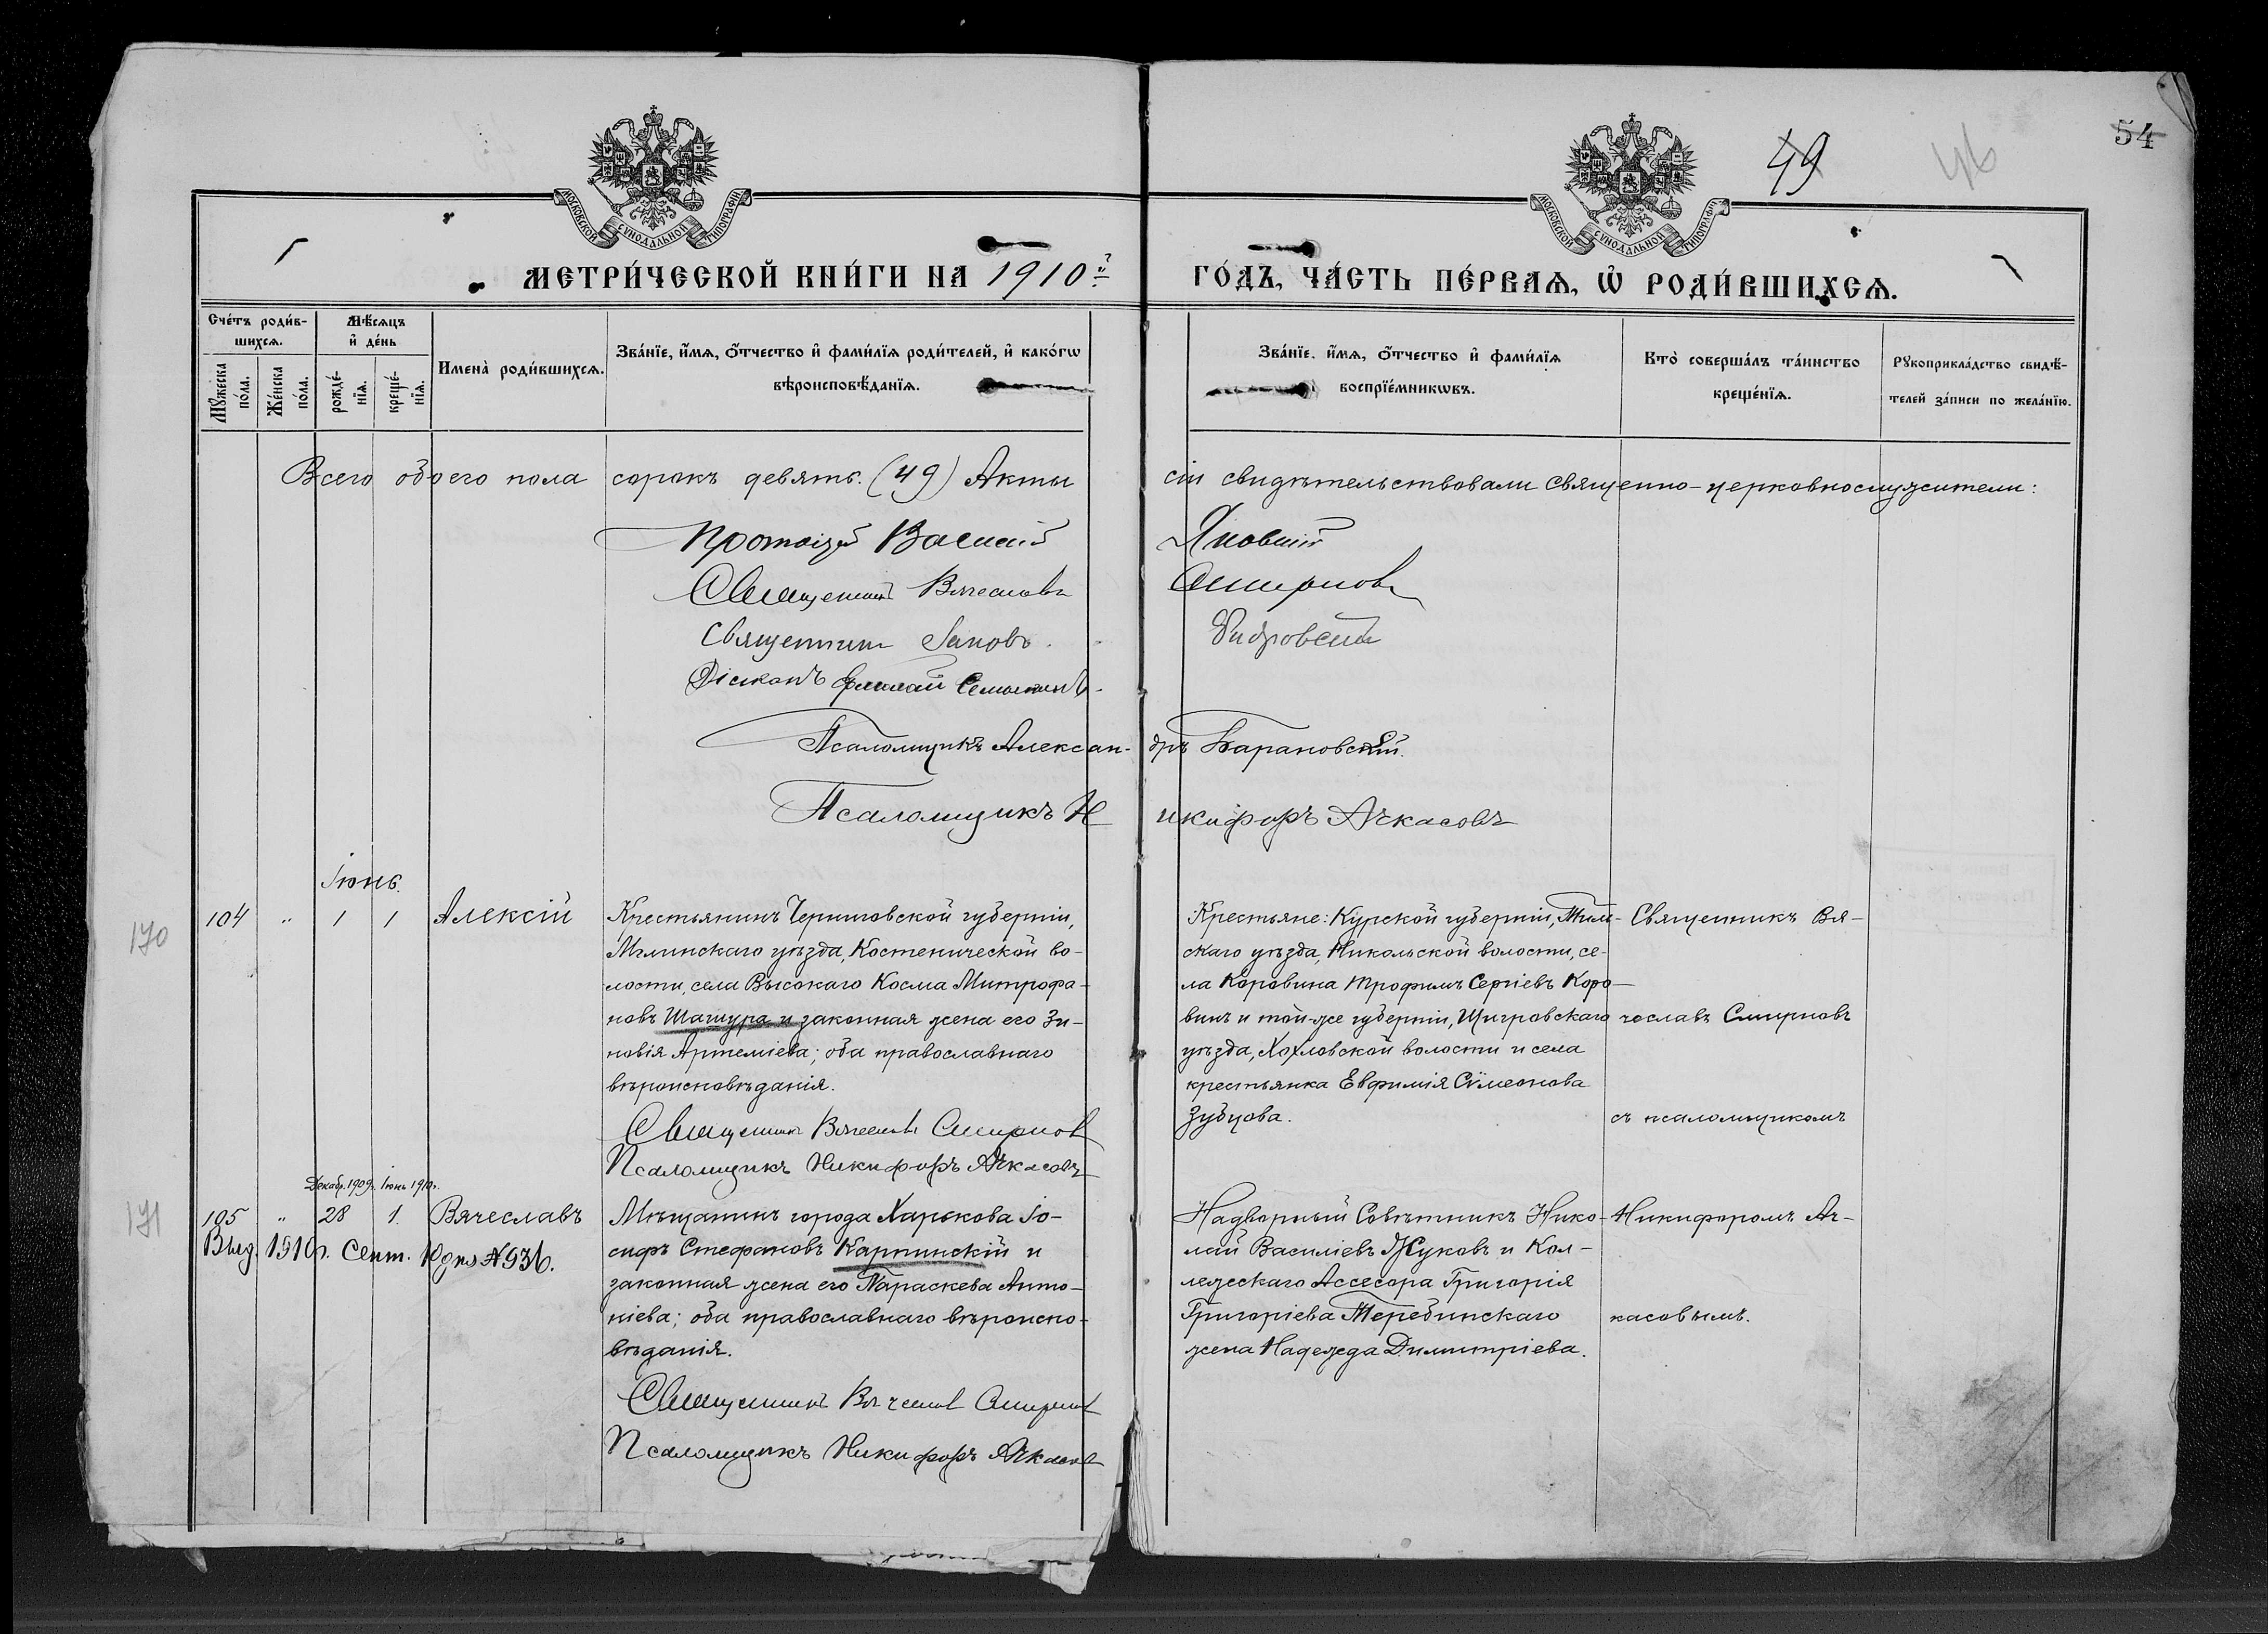 54
49
46
МОСКОВСКОЙ СѴНОДАЛЬНОЙ ТИПОГРАФІИ
МОСКОВСКОЙ СѴНОДАЛЬНОЙ ТИПОГРАФІИ
МЕТРИ́ЧЕСКОЙ КНИ́ГИ НА 1910й
ГО́ДЪ, ЧА́СТЬ ПЕ́РВАѦ, Ѡ҆ РОДИ́ВШИХСѦ.
Сче́тъ роди́в-
шихсѧ.
Мꙋ́жеска по́ла.
Же́нска по́ла.
Мѣ́сѧцъ
и҆ де́нь
рожде́-
нїѧ.
креще́-
нїѧ.
Имена̀ роди́вшихсѧ.
Зва́нїе, и҆́мѧ, ѻ҆́тчество и҆ фами́лїѧ роди́телей, и҆ како́гѡ
вѣроисповѣ́данїѧ.
Зва́нїе, и҆́мѧ, ѻ҆́тчество и҆ фами́лїѧ
воспрїе́мникѡвъ.
Кто̀ соверша́лъ та́инство
креще́нїѧ.
Рꙋкоприкла́дство свидѣ́-
телей за́писи по жела́нїю.
Всего обоего пола сорокъ девять. (49) Акты сіи свидѣтельствовали священно-церковнослужители:
Протоіерей Василій
Священникъ Вячеславъ Смирновъ
Священникъ Іаковъ
Діаконъ
Псаломщикъ Александръ Барановскій.
Псаломщикъ Никифоръ Ачкасовъ
Іюнь.
170
104 " 1 1 Алексій
Крестьянинъ Черниговской губерніи,
Мглинскаго уѣзда, Костенической во-
лости, села Высокаго Косма Митрофа-
новъ Шашура и законная жена его Зи-
новія Артеміева; оба православнаго
вѣроисповѣданія.
Священникъ Вячеславъ Смирновъ
Псаломщикъ Никифоръ Ачкасовъ
Крестьяне: Курской губерніи, Тим-
скаго уѣзда, Никольской волости, се-
ла Коровина Трофимъ Сергіевъ Коро-
винъ и той-же губерніи, Щигровскаго
уѣзда, Хохловской волости и села
крестьянка Евфимія Сѵмеонова
Зубцова.
Священникъ Вя-
чеславъ Смирновъ
съ псаломщикомъ
Никифоромъ Ач-
касовымъ.
Декабр. 1909г. Іюнь 1910г.
171
105 " 28 1. Вячеславъ
Выд. 1910г. Сент. 10 дня №936.
Мѣщанинъ города Харькова Іо-
сифъ Стефановъ Карпинскій и
законная жена его Параскева Анто-
ніева; оба православнаго вѣроиспо-
вѣданія.
Священникъ Вячеславъ Смирновъ
Псаломщикъ Никифоръ Ачкасовъ
Надворный Совѣтникъ Нико-
лай Василіевъ Жуковъ и Кол-
лежскаго Ассесора Григорія
Григоріева Теребинскаго
жена Надежда Димитріева.